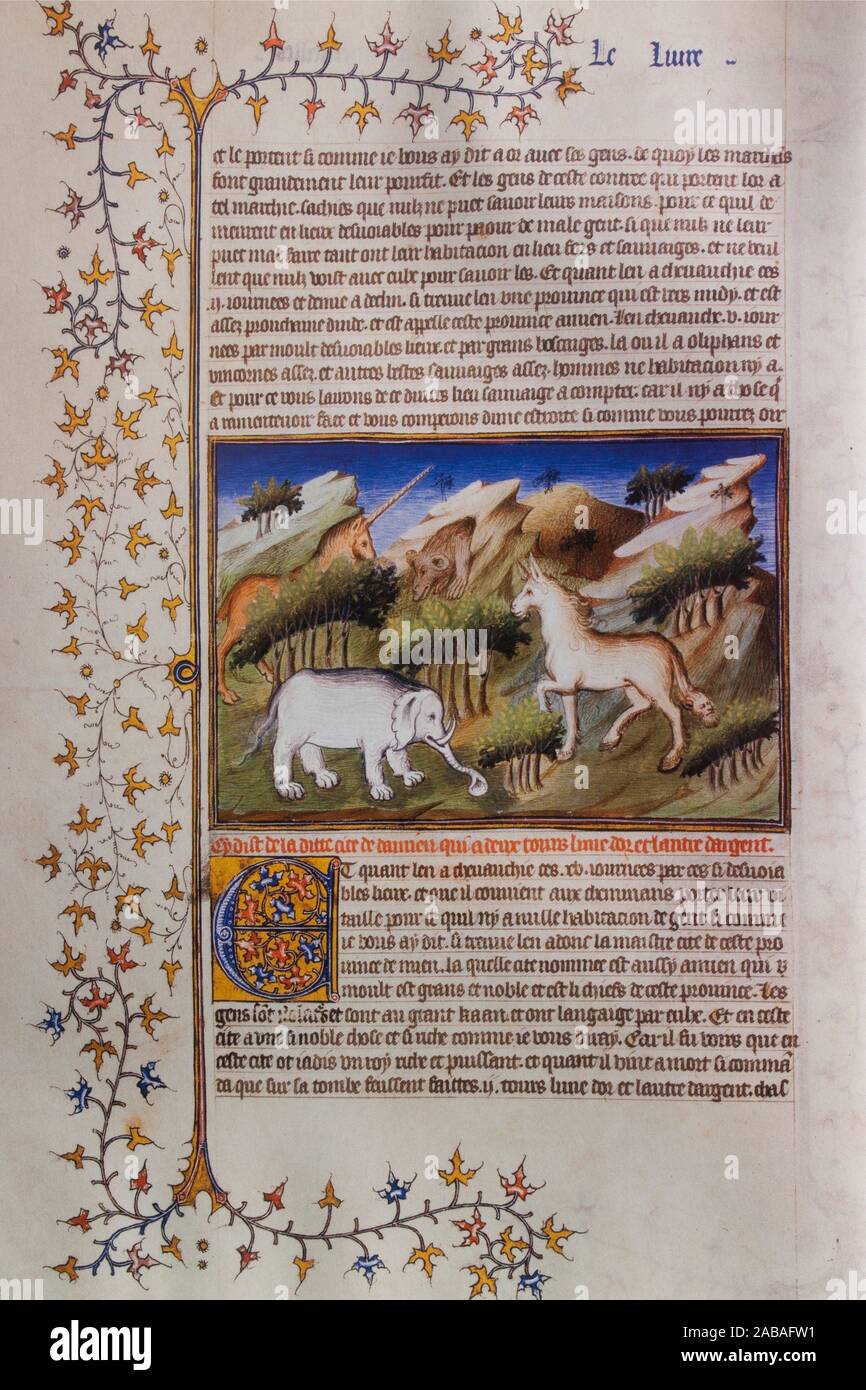 Le Liure
et le portent si comme ie vous ay dit a or auec ses gens. de quoy les marchans
font grandement leur pourfit. Et les gens de ceste contree qui portent lor a
tel marchie. sachies que nulz ne puet sauoir leurs maisons. pour ce quil de
meurent en lieux desuoiables pour paour de male gent. si que nulz ne leur
puet mal faire tant ont leur habitacion en lieu fors et sauuaiges. et ne veul
lent que nulz voist auec eulx pour sauoir les. Et quant len a cheuauchie ces
.ij. iournees et demie a declin. si treuue len vne prouince qui est vers midy. et est
assez prouchaine dinde. et est appelle ceste prouince amien. Len cheuauche .v. iour
nees par moult desuoiables lieux. et par grans boscaiges. la ou il a oliphans et
vnicornes assez. et autres bestes sauuaiges assez. hommes ne habitacion ny a.
Et pour ce vous lairons de ce dit lieu sauuaige a compter. car il ny a chose q̄
a ramenteuoir face et vous compterons dune estoire si comme vous pourrez oir
Cy dist de la ditte cite de damien qui a deux tours lune dor et lautre dargent.
ET quant len a cheuauchie ces .xv. iournees par ces si desuoia
bles lieux. et que il conuient aux cheminans porter leur vi
taille pour ce quil ny a nulle habitacion de gens si comme
ie vous ay dit. si treuue len adonc la maistre cite de ceste pro
uince de mien. la quelle cite nommee est aussy amien qui
moult est grans et noble et est li chiefs de ceste prouince. Les
gens sōt et sont au grant kaan. et ont langaige par eulx. Et en ceste
cite a vne si noble chose et si riche comme ie vous diray. Car il fu voirs que en
ceste cite ot iadis vn roy riche et puissant. et quant il vint a mort si commā
da que sur sa tombe feussent faittes .ij. tours lune dor et lautre dargent. chas
alamy
alamy
alamy
Image ID: 2ABAFW1
www.alamy.com